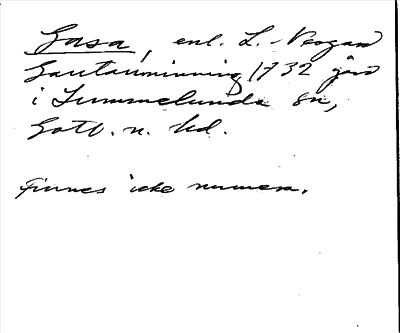 Gasa, enl. L.-Neogard
Gautauminning 1732 går
i Lummelunda sn,
Gotl. n. hd.
Finnes icke numera.